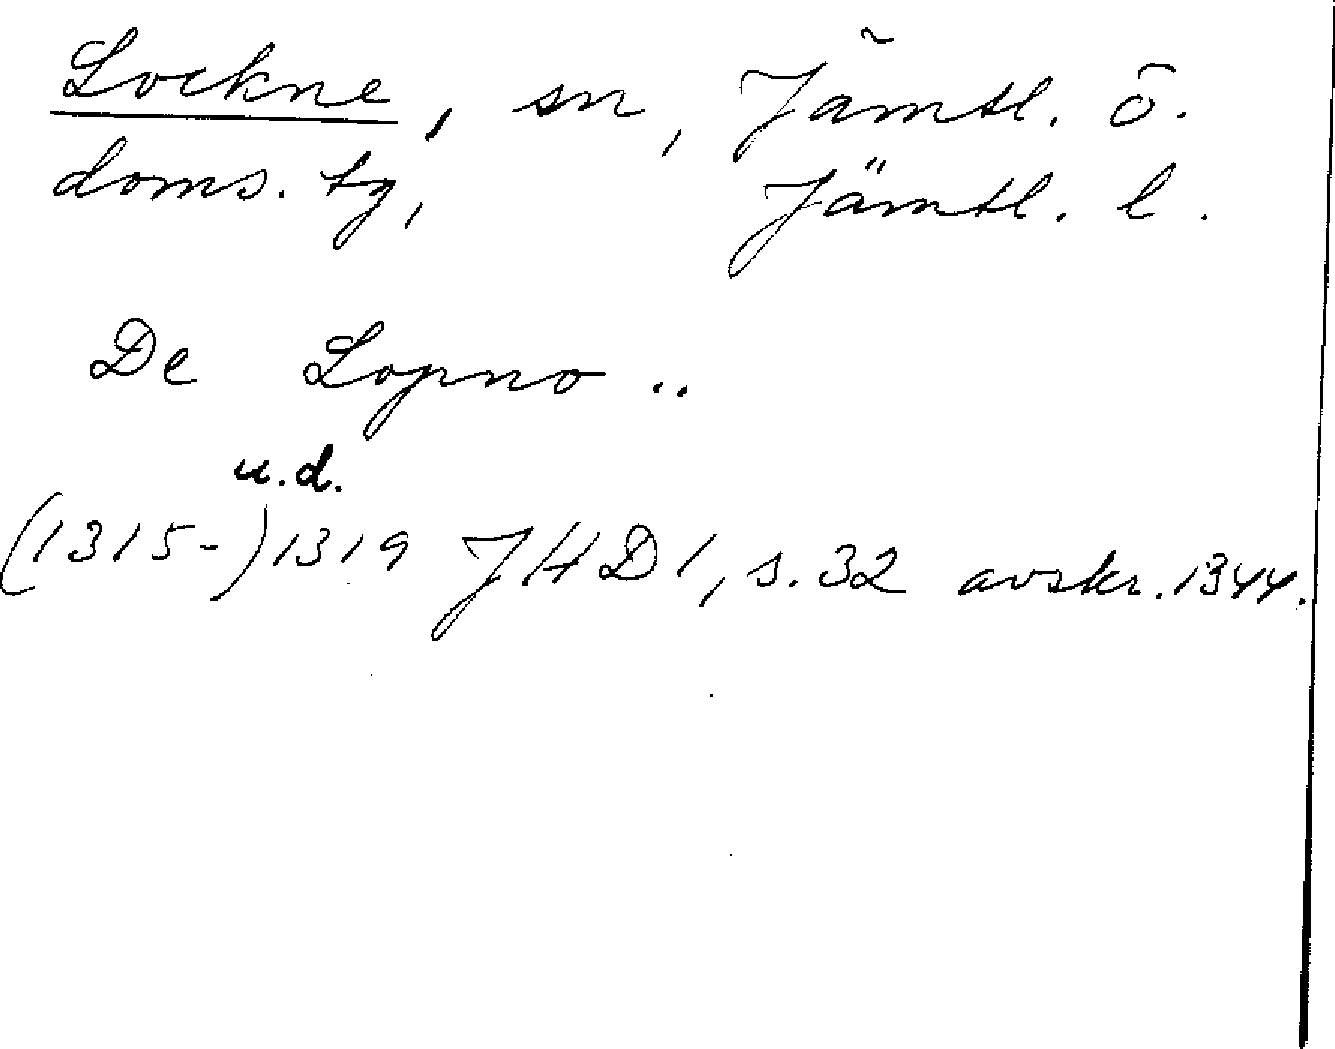 Lockne, sn, Jämtl. ö.
doms. tg, Jämtl. l.
De Lopno ..
u.d.
(1315-)1319 JHD 1, s. 32 avskr. 1344.